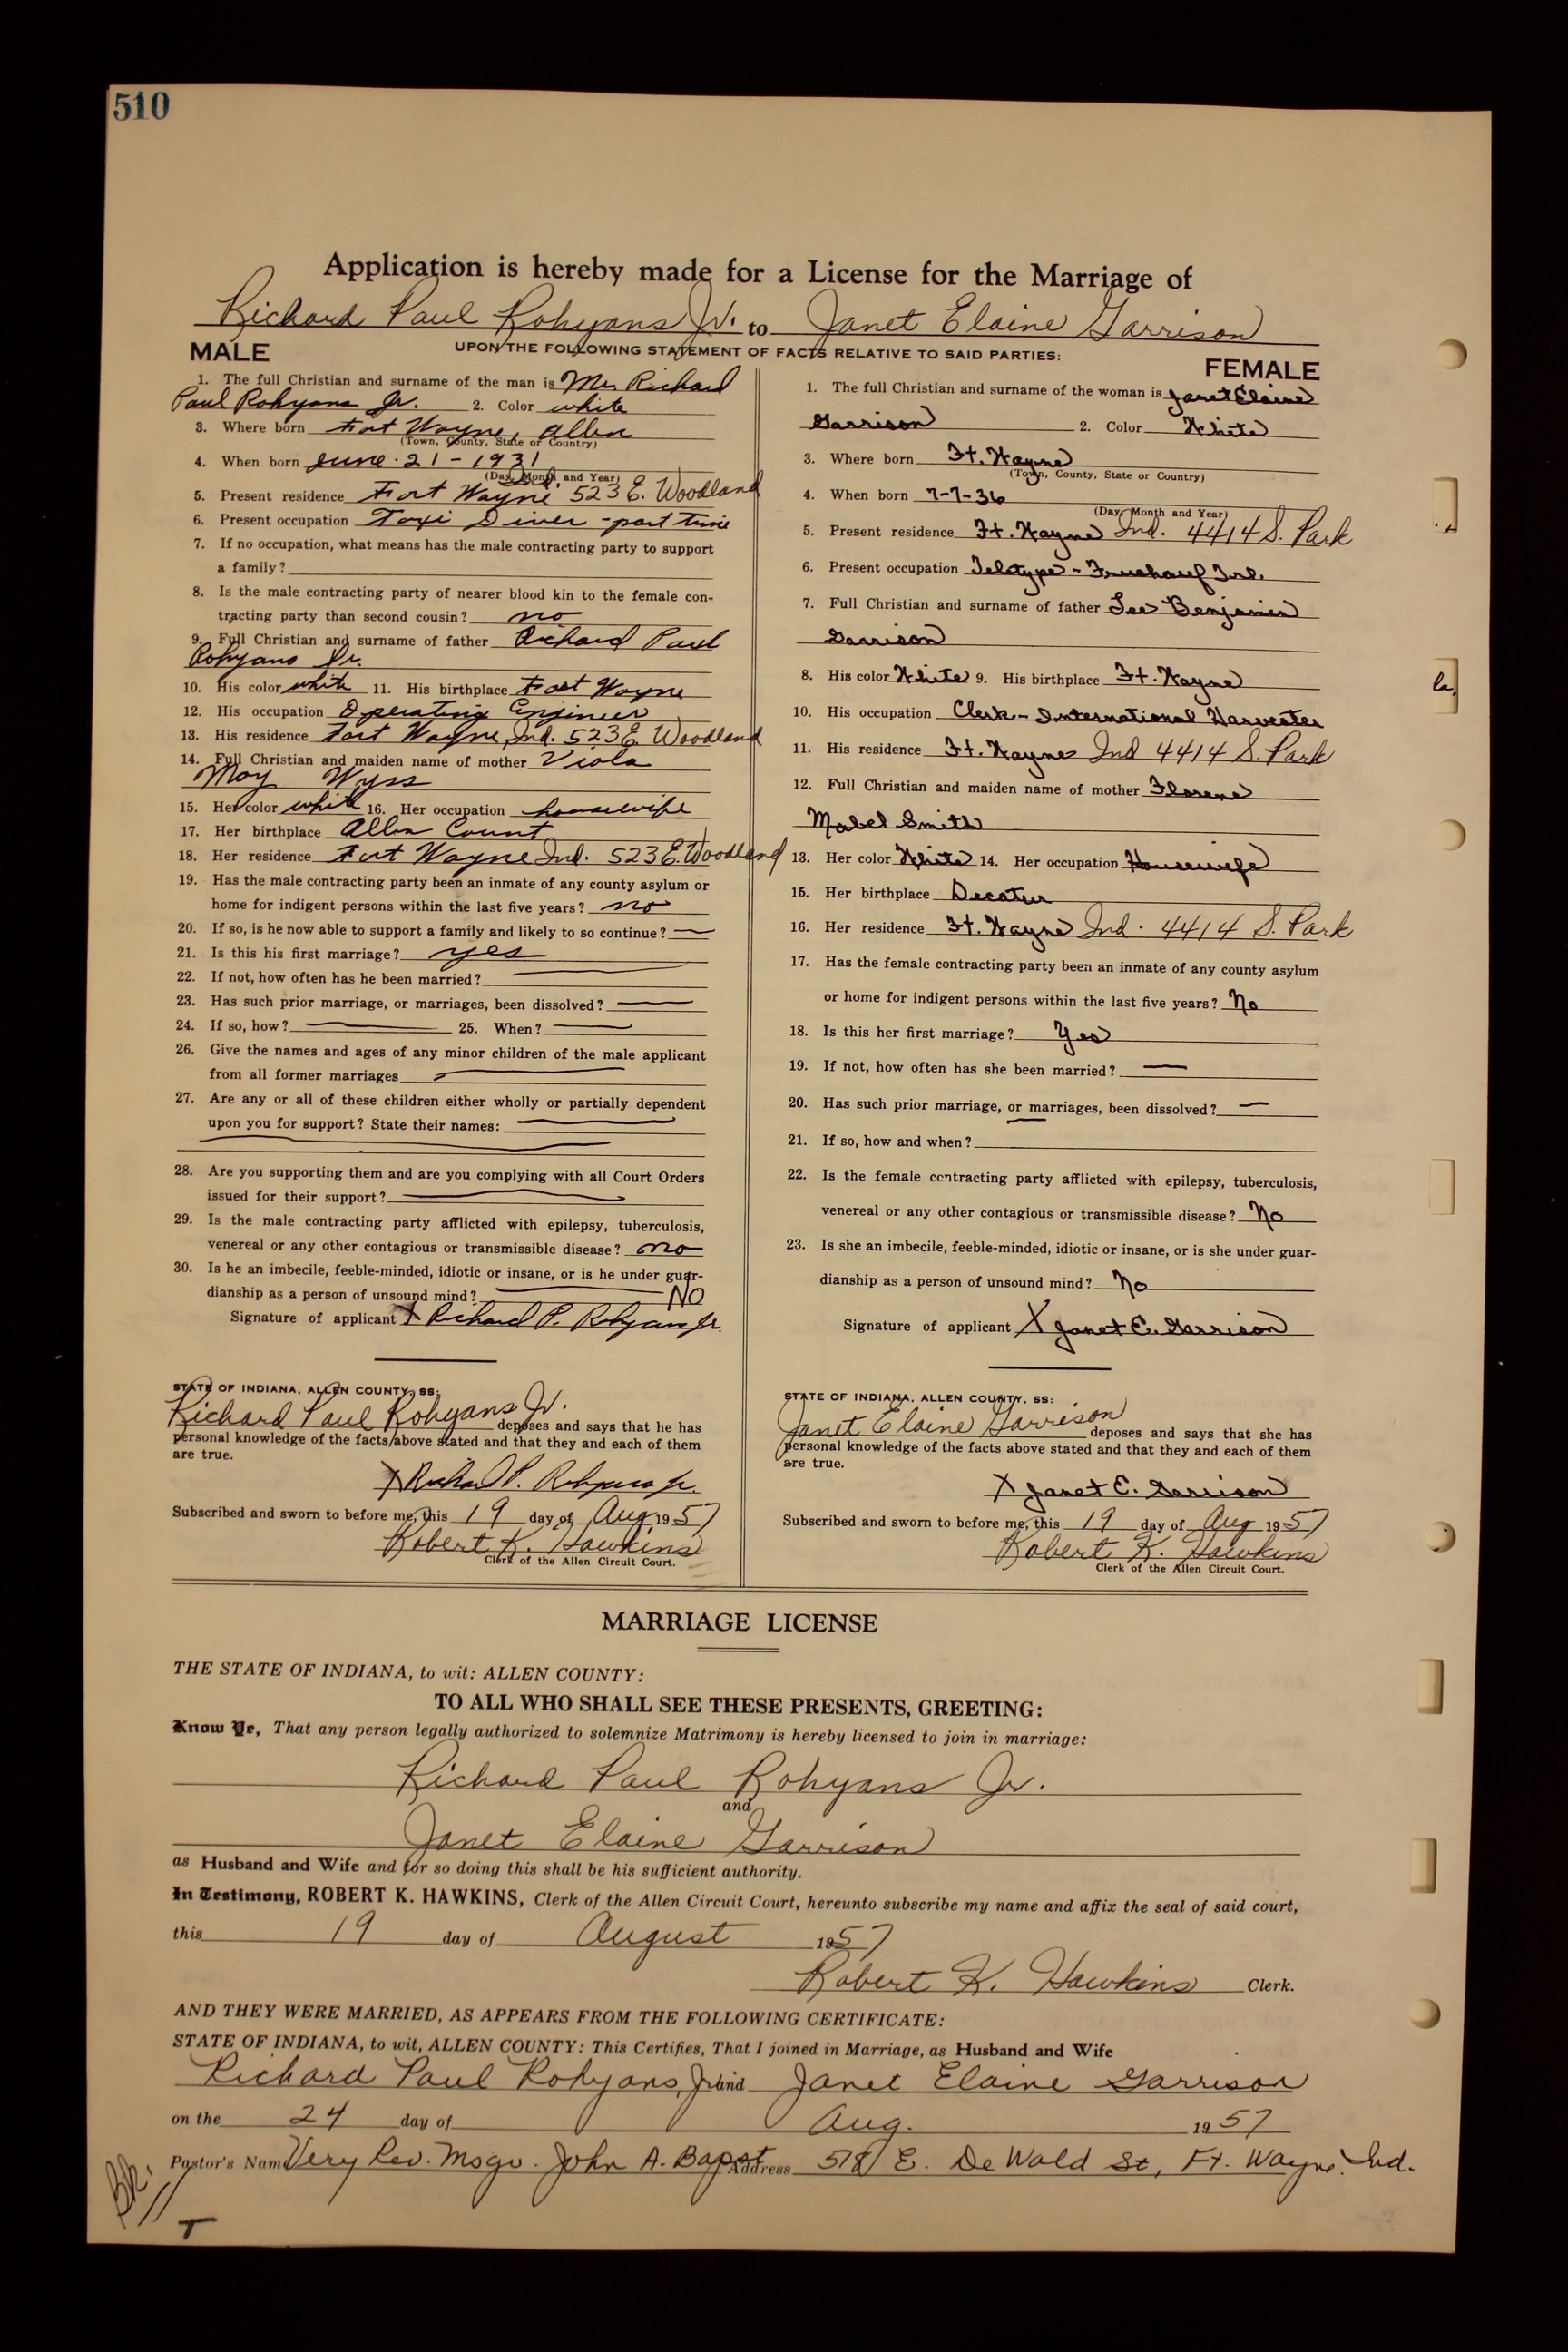 510
Application is hereby made for a License for the Marriage of
Richard Paul Rohyans Jr. to Janet Elaine Garrison
UPON THE FOLLOWING STATEMENT OF FACTS RELATIVE TO SAID PARTIES:
MALE
1. The full Christian and surname of the man is Mr. Richard
Paul Rohyans Jr. 2. Color white
3. Where born Fort Wayne, Allen
(Town, County, State or Country)
Ind.
4. When born June 21-1931
(Day, Month, and Year)
5. Present residence Fort Wayne 523 E. Woodland
6. Present occupation Taxi Driver - part time
7. If no occupation, what means has the male contracting party to support
a family?
8. Is the male contracting party of nearer blood kin to the female con-
tracting party than second cousin? no
9. Full Christian and surname of father Richard Paul
Rohyans Sr.
10. His color white 11. His birthplace Fort Wayne
12. His occupation Operating Engineer
13. His residence Fort Wayne, Ind. 523 E. Woodland
14. Full Christian and maiden name of mother Viola
May Wyss
15. Her color white 16. Her occupation housewife
17. Her birthplace Allen Count
18. Her residence Fort Wayne Ind. 523 E. Woodland
19. Has the male contracting party been an inmate of any county asylum or
home for indigent persons within the last five years? no
20. If so, is he now able to support a family and likely to so continue? —
21. Is this his first marriage? yes
22. If not, how often has he been married? —
23. Has such prior marriage, or marriages, been dissolved? —
24. If so, how? — 25. When? —
26. Give the names and ages of any minor children of the male applicant
from all former marriages —
27. Are any or all of these children either wholly or partially dependent
upon you for support? State their names: —
28. Are you supporting them and are you complying with all Court Orders
issued for their support? —
29. Is the male contracting party afflicted with epilepsy, tuberculosis,
venereal or any other contagious or transmissible disease? no
30. Is he an imbecile, feeble-minded, idiotic or insane, or is he under guar-
dianship as a person of unsound mind? — NO
Signature of applicant X Richard P. Rohyans Jr.
STATE OF INDIANA, ALLEN COUNTY, SS:
Richard Paul Rohyans Jr. deposes and says that he has
personal knowledge of the facts above stated and that they and each of them
are true.
X Richard P. Rohyans Jr.
Subscribed and sworn to before me, this 19 day of Aug, 1957
Robert K. Hawkins
Clerk of the Allen Circuit Court.
FEMALE
1. The full Christian and surname of the woman is Janet Elaine
Garrison 2. Color White
3. Where born Ft. Wayne
(Town, County, State or Country)
4. When born 7-7-36
(Day, Month and Year)
5. Present residence Ft. Wayne Ind. 4414 S. Park
6. Present occupation Teletype - Fruehauf Trl.
7. Full Christian and surname of father Lee Benjamin
Garrison
8. His color White 9. His birthplace Ft. Wayne
10. His occupation Clerk - International Harvester
11. His residence Ft. Wayne Ind 4414 S. Park
12. Full Christian and maiden name of mother Florene
Mabel Smith
13. Her color White 14. Her occupation Housewife
15. Her birthplace Decatur
16. Her residence Ft. Wayne Ind. 4414 S. Park
17. Has the female contracting party been an inmate of any county asylum
or home for indigent persons within the last five years? No
18. Is this her first marriage? Yes
19. If not, how often has she been married? —
20. Has such prior marriage, or marriages, been dissolved? —
21. If so, how and when?
22. Is the female contracting party afflicted with epilepsy, tuberculosis,
venereal or any other contagious or transmissible disease? No
23. Is she an imbecile, feeble-minded, idiotic or insane, or is she under guar-
dianship as a person of unsound mind? No
Signature of applicant X Janet E. Garrison
STATE OF INDIANA, ALLEN COUNTY, SS:
Janet Elaine Garrison deposes and says that she has
personal knowledge of the facts above stated and that they and each of them
are true.
X Janet E. Garrison
Subscribed and sworn to before me, this 19 day of Aug 1957
Robert K. Hawkins
Clerk of the Allen Circuit Court.
MARRIAGE LICENSE
THE STATE OF INDIANA, to wit: ALLEN COUNTY:
TO ALL WHO SHALL SEE THESE PRESENTS, GREETING:
Know Ye, That any person legally authorized to solemnize Matrimony is hereby licensed to join in marriage:
Richard Paul Rohyans Jr.
and
Janet Elaine Garrison
as Husband and Wife and for so doing this shall be his sufficient authority.
In Testimony, ROBERT K. HAWKINS, Clerk of the Allen Circuit Court, hereunto subscribe my name and affix the seal of said court,
this 19 day of August 1957
Robert K. Hawkins Clerk.
AND THEY WERE MARRIED, AS APPEARS FROM THE FOLLOWING CERTIFICATE:
STATE OF INDIANA, to wit, ALLEN COUNTY: This Certifies, That I joined in Marriage, as Husband and Wife
Richard Paul Rohyans, Jr. and Janet Elaine Garrison
on the 24 day of Aug. 1957
Pastor's Name Very Rev. Msgr. John A. Bapst Address 518 E. DeWald St, Ft. Wayne, Ind.
T
la,